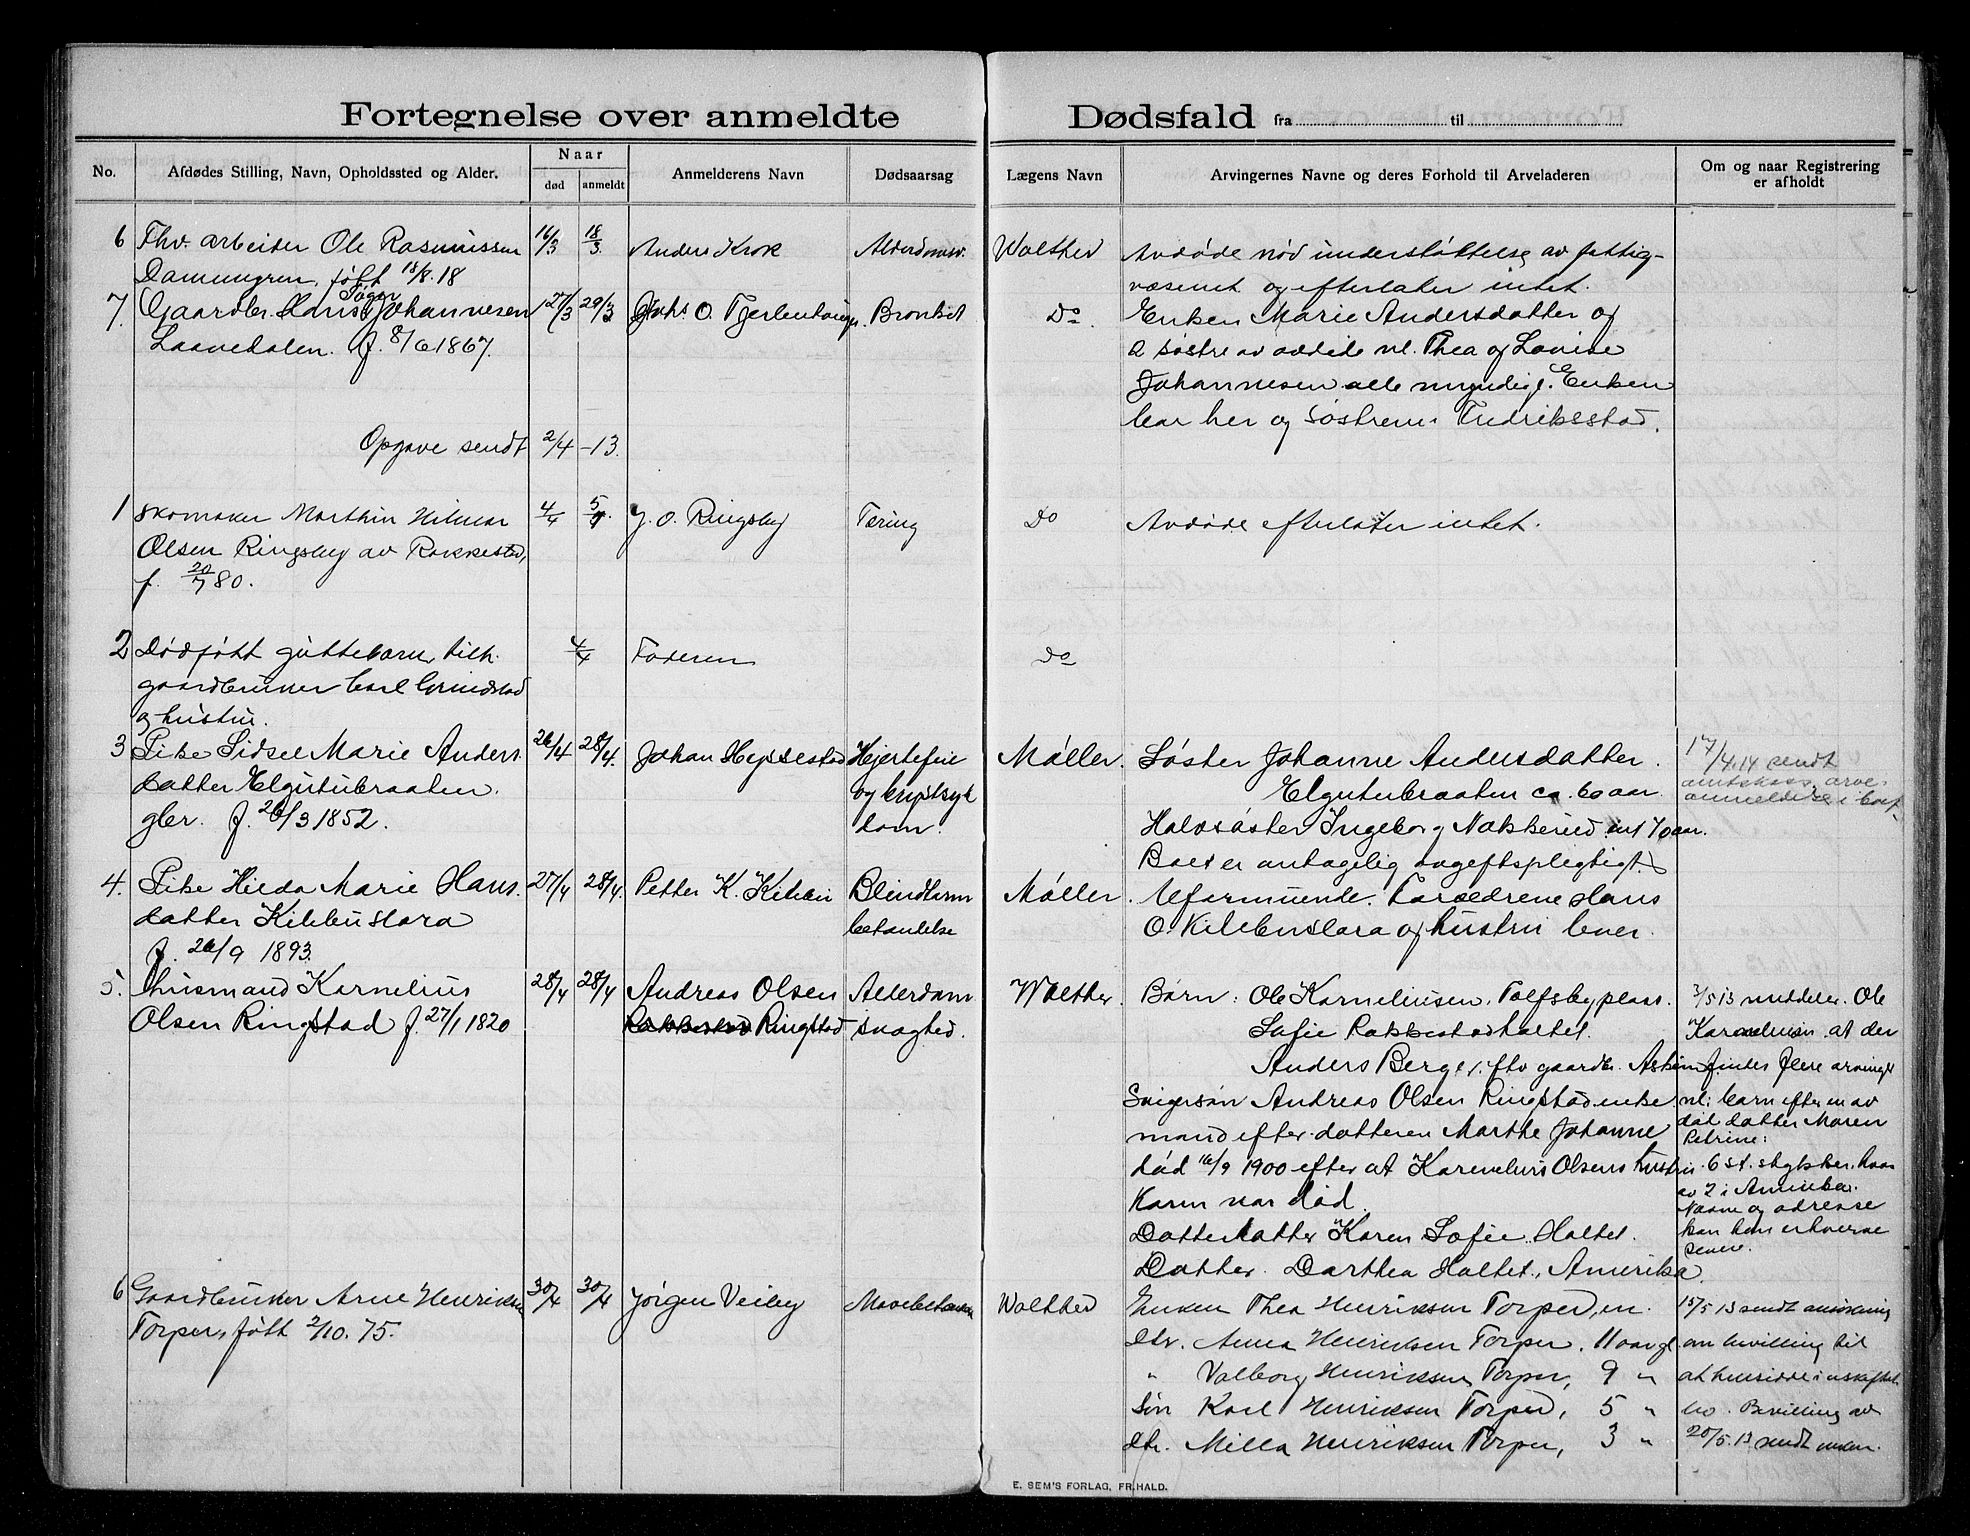 Fortegnelse over anmeldte Dødsfald fra til
No.
Afdødes Stilling, Navn, Opholdssted og Alder.
Naar
død
anmeldt
Anmelderens Navn
Dødsaarsag
Lægens Navn
Arvingernes Navne og deres Forhold til Arveladeren
Om og naar Registrering
er afholdt
6 Fhv. arbeider Ole Rasmussen 16/3 18/3 Anders Krok Walther Avdøde nød understøttelse av fattig-
født 18/8.18 væsenet og efterlater intet.
7. Gaardbr. Hans Johannesen 27/3 29/3 Johs. O. Bronkit Do. Enken Marie Andersdatter og
Laavedalen. f. 8/6 1867. 2 søstre av avdøde nl. Thea og Lovise
Johannesen alle myndige. Enken
bor her og søstrene Fredriksstad.
Opgave sendt 2/4 -13.
1 skomaker Marthin Hilmar 4/4 5/4. J. O. Ringsby Tæring Do Avdøde efterlater intet.
Olsen Ringsby av Rakkestad,
f. 20/7 80.
2 Dødfødt guttebarn, tilh. 4/4 Faderen Do
gaardbruker Carl Grindstad
og hustru.
3 Pike Sidsel Marie Anders 26/4 28/4. Johan Heissestad Hjertefeil Møller. Søster Johanne Andersdatter. 17/4.14 sendt
datter Elgetubraaten. og brystsyk Elgetubraaten ca. 60 aar.
gbr. f. 26/3 1852. dom. Halvsøster Ingeborg Nakkerud 70 aar.
Boet er antagelig avgiftspligtigt.
4. Pike Hilda Marie Hans. 27/4 28/4. Petter K. Kilebu Blindtarm Møller. Uformuende. Forældrene Hans
datter Kilebuslora betændelse O. Kilebuslora og hustru lever.
f. 26/9 1893.
5. Husmand Kornelius 28/4 28/4 Andreas Olsen Alderdom Walther. Børn: Ole Korneliusen, Tolfsbyplass. 2/5 13 meddeler Ole
Olsen Ringstad f. 27/1 1820 Ringstad svaghed. Sofie Rakkestad Haltet. Korneliusen at der
Anders Berger, fhv gaardbr. Askim findes flere arvinger
Svigersøn Andreas Olsen Ringstad enke nl: barn efter en av
mand efter datteren Marthe Johanne død datter Maren
Petrine:
død 16/9 1900 efter at Kornelius Olsens hustru 6 st. stykker, hvor
Karen var død. av 2 i Amerika.
Navne og adresse
Datterdatter Karen Sofie Haltet. kan han erhverve
senere.
Datter Darthea Haltet, Amerika.
6 Gaardbruker Arne Henriksen 30/4 30/4 Jørgen Veiby Walther Enken Thea Henriksen Torper, 15/5 13 sendt ansøkning
Torper, født 2/10. 75. dtr. Anna Henriksen Torper, 11 aar gl. om bevilling til
" Valborg Henriksen Torper, 9 " at hensidde i uskiftet
søn Karl Henriksen Torper, 5 " bo. Bevilling av
dtr. Milla Henriksen Torper, 3 " 20/5.13 sendt enken.
E. SEM'S FORLAG, FR.HALD.